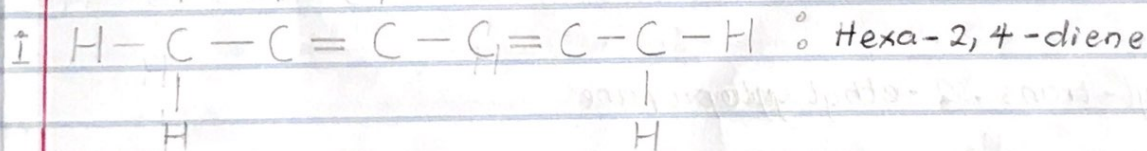 I H - C - C = C - C = C - C - H : Hexa-2,4-diene
| |
H H